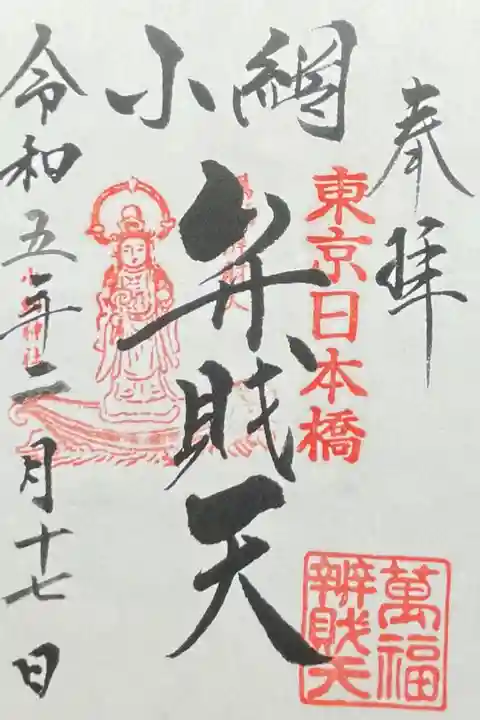 奉拝
東京日本橋
小網
弁財天
令和五年二月十七日
小網神社
萬福
辨財天